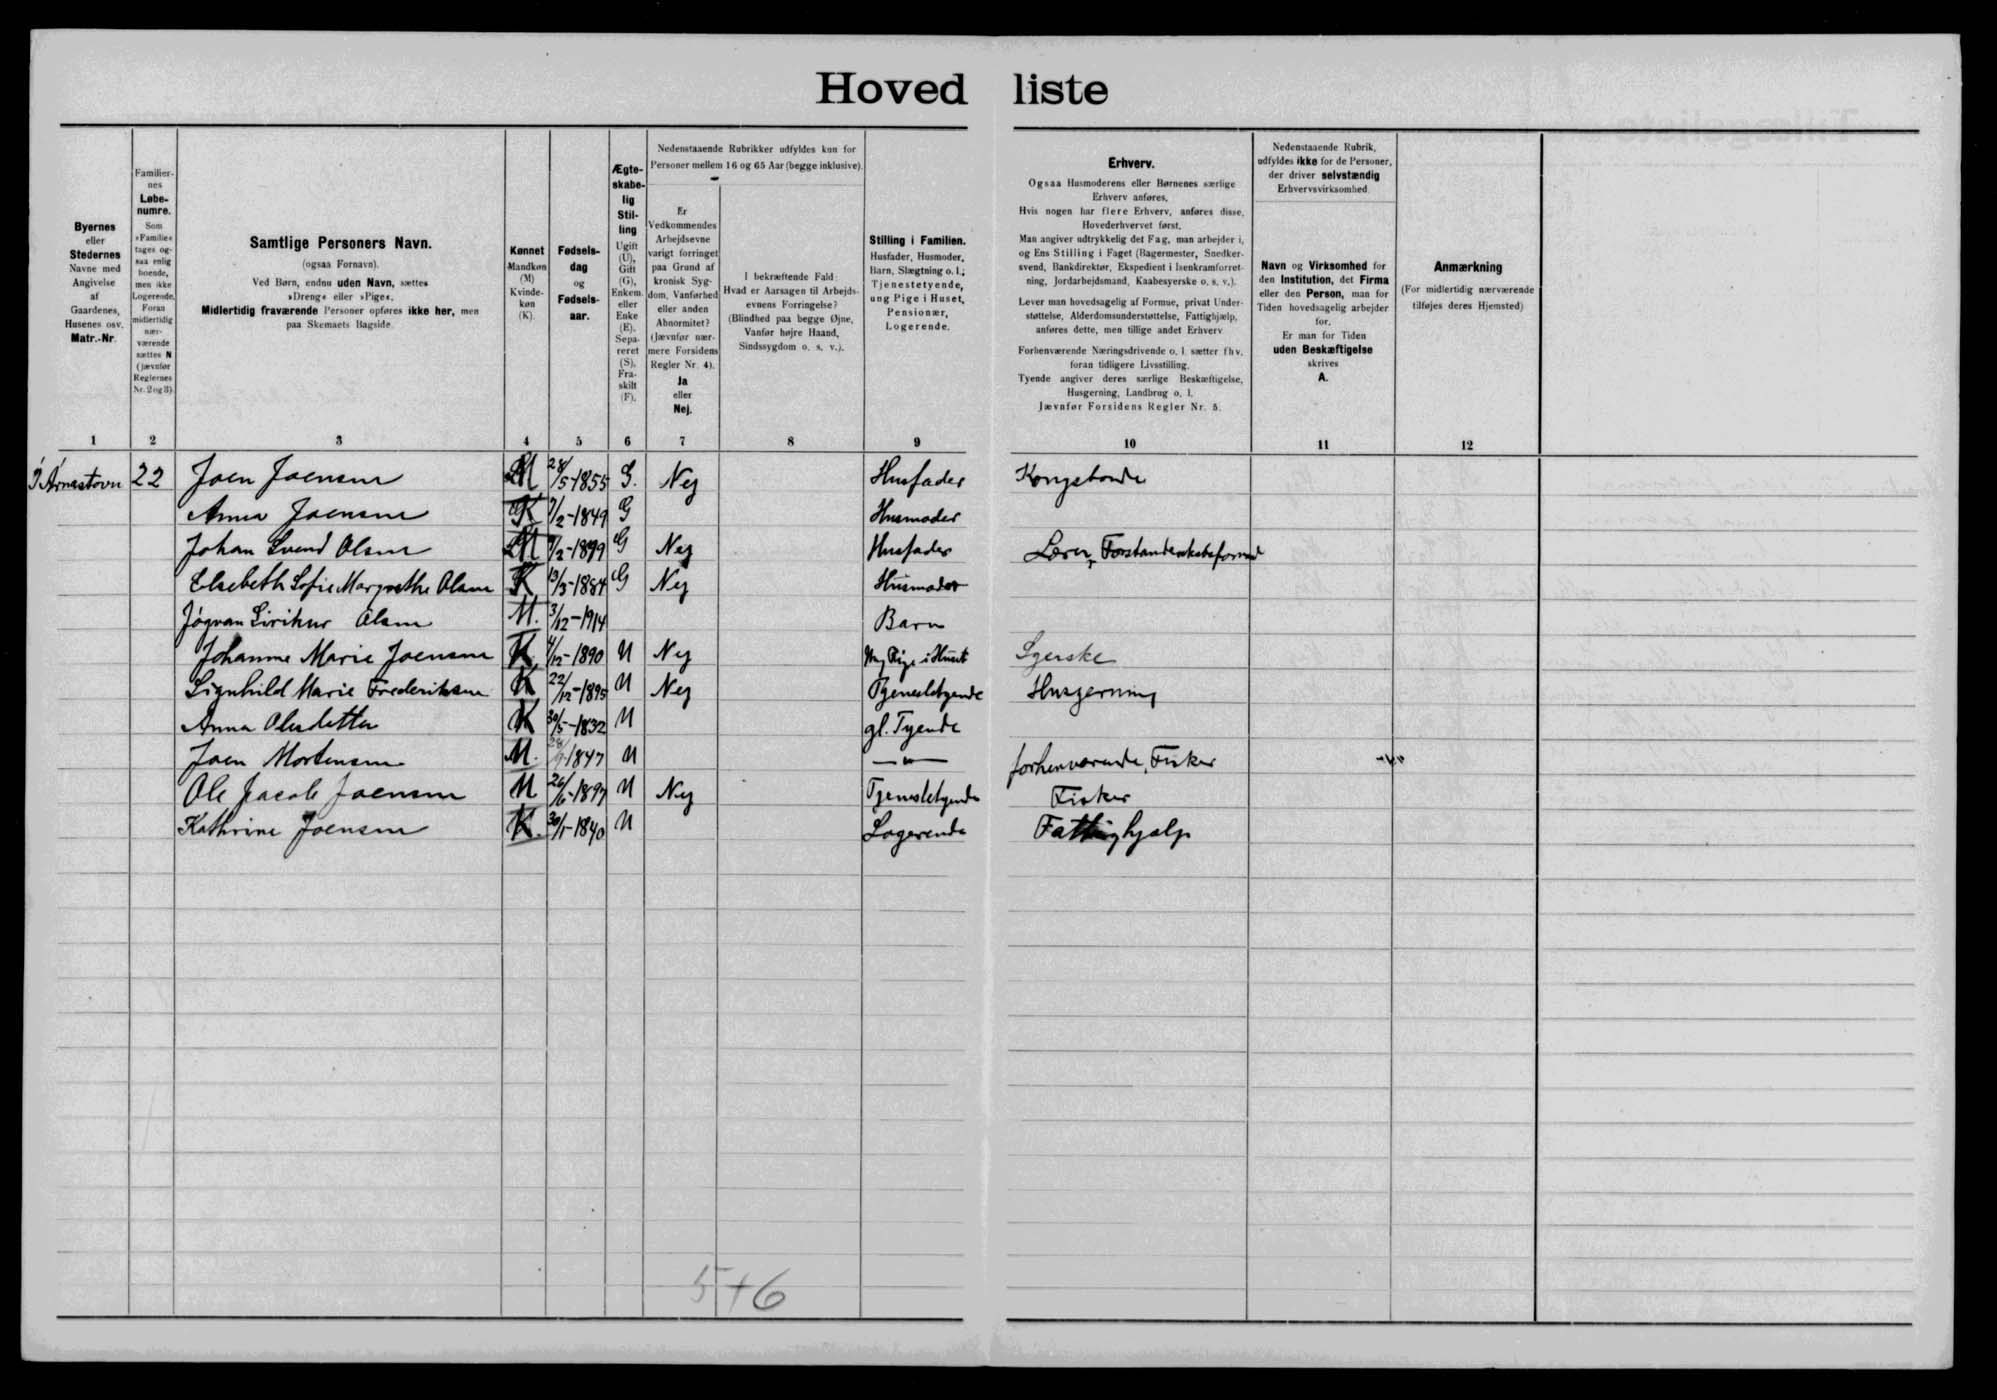 Hovedliste
Byernes
eller
Stedernes
Navne med
Angivelse
af
Gaardenes,
Husenes osv.
Matr.-Nr.
Familier-
nes
Løbe-
numre.
Som
»Familie«
tages og-
saa enlig
boende,
men ikke
Logerende.
Foran
midlertidig
nær-
værende
sættes N
(jævnfør
Reglernes
Nr. 2 og 3).
Samtlige Personers Navn.
(ogsaa Fornavn).
Ved Børn, endnu uden Navn, sættes
»Dreng« eller »Pige«.
Midlertidig fraværende Personer opføres ikke her, men
paa Skemaets Bagside.
Kønnet
Mandkøn
(M)
Kvinde-
køn
(K).
Fødsels-
dag
og
Fødsels-
aar.
Ægte-
skabe-
lig
Stil-
ling
Ugift
(U),
Gift
(G),
Enkem.
eller
Enke
(E),
Sepa-
reret
(S),
Fra-
skilt
(F).
Nedenstaaende Rubrikker udfyldes kun for
Personer mellem 16 og 65 Aar (begge inklusive).
Er
Vedkommendes
Arbejdsevne
varigt forringet
paa Grund af
kronisk Syg-
dom, Vanførhed
eller anden
Abnormitet?
(Jævnfør nær-
mere Forsidens
Regler Nr. 4).
Ja
eller
Nej.
I bekræftende Fald:
Hvad er Aarsagen til Arbejds-
evnens Forringelse?
(Blindhed paa begge Øjne,
Vanfør højre Haand,
Sindssygdom o. s. v.).
Stilling i Familien.
Husfader, Husmoder,
Barn, Slægtning o. l.;
Tjenestetyende,
ung Pige i Huset,
Pensionær,
Logerende.
Erhverv.
Ogsaa Husmoderens eller Børnenes særlige
Erhverv anføres,
Hvis nogen har flere Erhverv, anføres disse,
Hovederhvervet først.
Man angiver udtrykkelig det Fag, man arbejder i,
og Ens Stilling i Faget (Bagermester, Snedker-
svend, Bankdirektør, Ekspedient i Isenkramforret-
ning, Jordarbejdsmand, Kaabesyerske o. s. v.).
Lever man hovedsagelig af Formue, privat Under-
støttelse, Alderdomsunderstøttelse, Fattighjælp,
anføres dette, men tillige andet Erhverv
Forhenværende Næringsdrivende o. l. sætter fhv.
foran tidligere Livsstilling.
Tyende angiver deres særlige Beskæftigelse,
Husgerning, Landbrug o. l.
Jævnfør Forsidens Regler Nr. 5.
Nedenstaaende Rubrik,
udfyldes ikke for de Personer,
der driver selvstændig
Erhvervsvirksomhed.
Navn og Virksomhed for
den Institution, det Firma
eller den Person, man for
Tiden hovedsagelig arbejder
for.
Er man for Tiden
uden Beskæftigelse
skrives
A.
Anmærkning
(For midlertidig nærværende
tilføjes deres Hjemsted)
1 2 3 4 5 6 7 8 9 10 11 12
Í Árnastovu 22 Joen Joensen M 28/5-1855 G. Nej Husfader Kongsbonde
Anna Joensen K 7/2-1849 G Husmoder
Johan Svend Olsen M 7/2-1879 G Nej Husfader Lærer, Forstanderskabsformd
Elsebeth Sofie Margrethe Olsen K 13/3-1884 G Nej Husmoder
Jógvan Eirikur Olsen M. 3/12-1914 Barn
Johanne Marie Joensen K 4/12-1890 U Nej Ung Pige i Huset Syerske
Signhild Marie Frederiksen K 22/12-1895 U Nej Tjenestetyende Husgerning
Anna Olesdatter K 30/5-1832 U gl. Tyende
Joen Mortensen M. 28/9-1847 U — " — forhenværende Fisker
Ole Jacob Joensen M 26/6-1897 U Nej Tjenestetyende Fisker
Kathrine Joensen K. 30/1-1840 U Logerende Fattighjælp
5+6